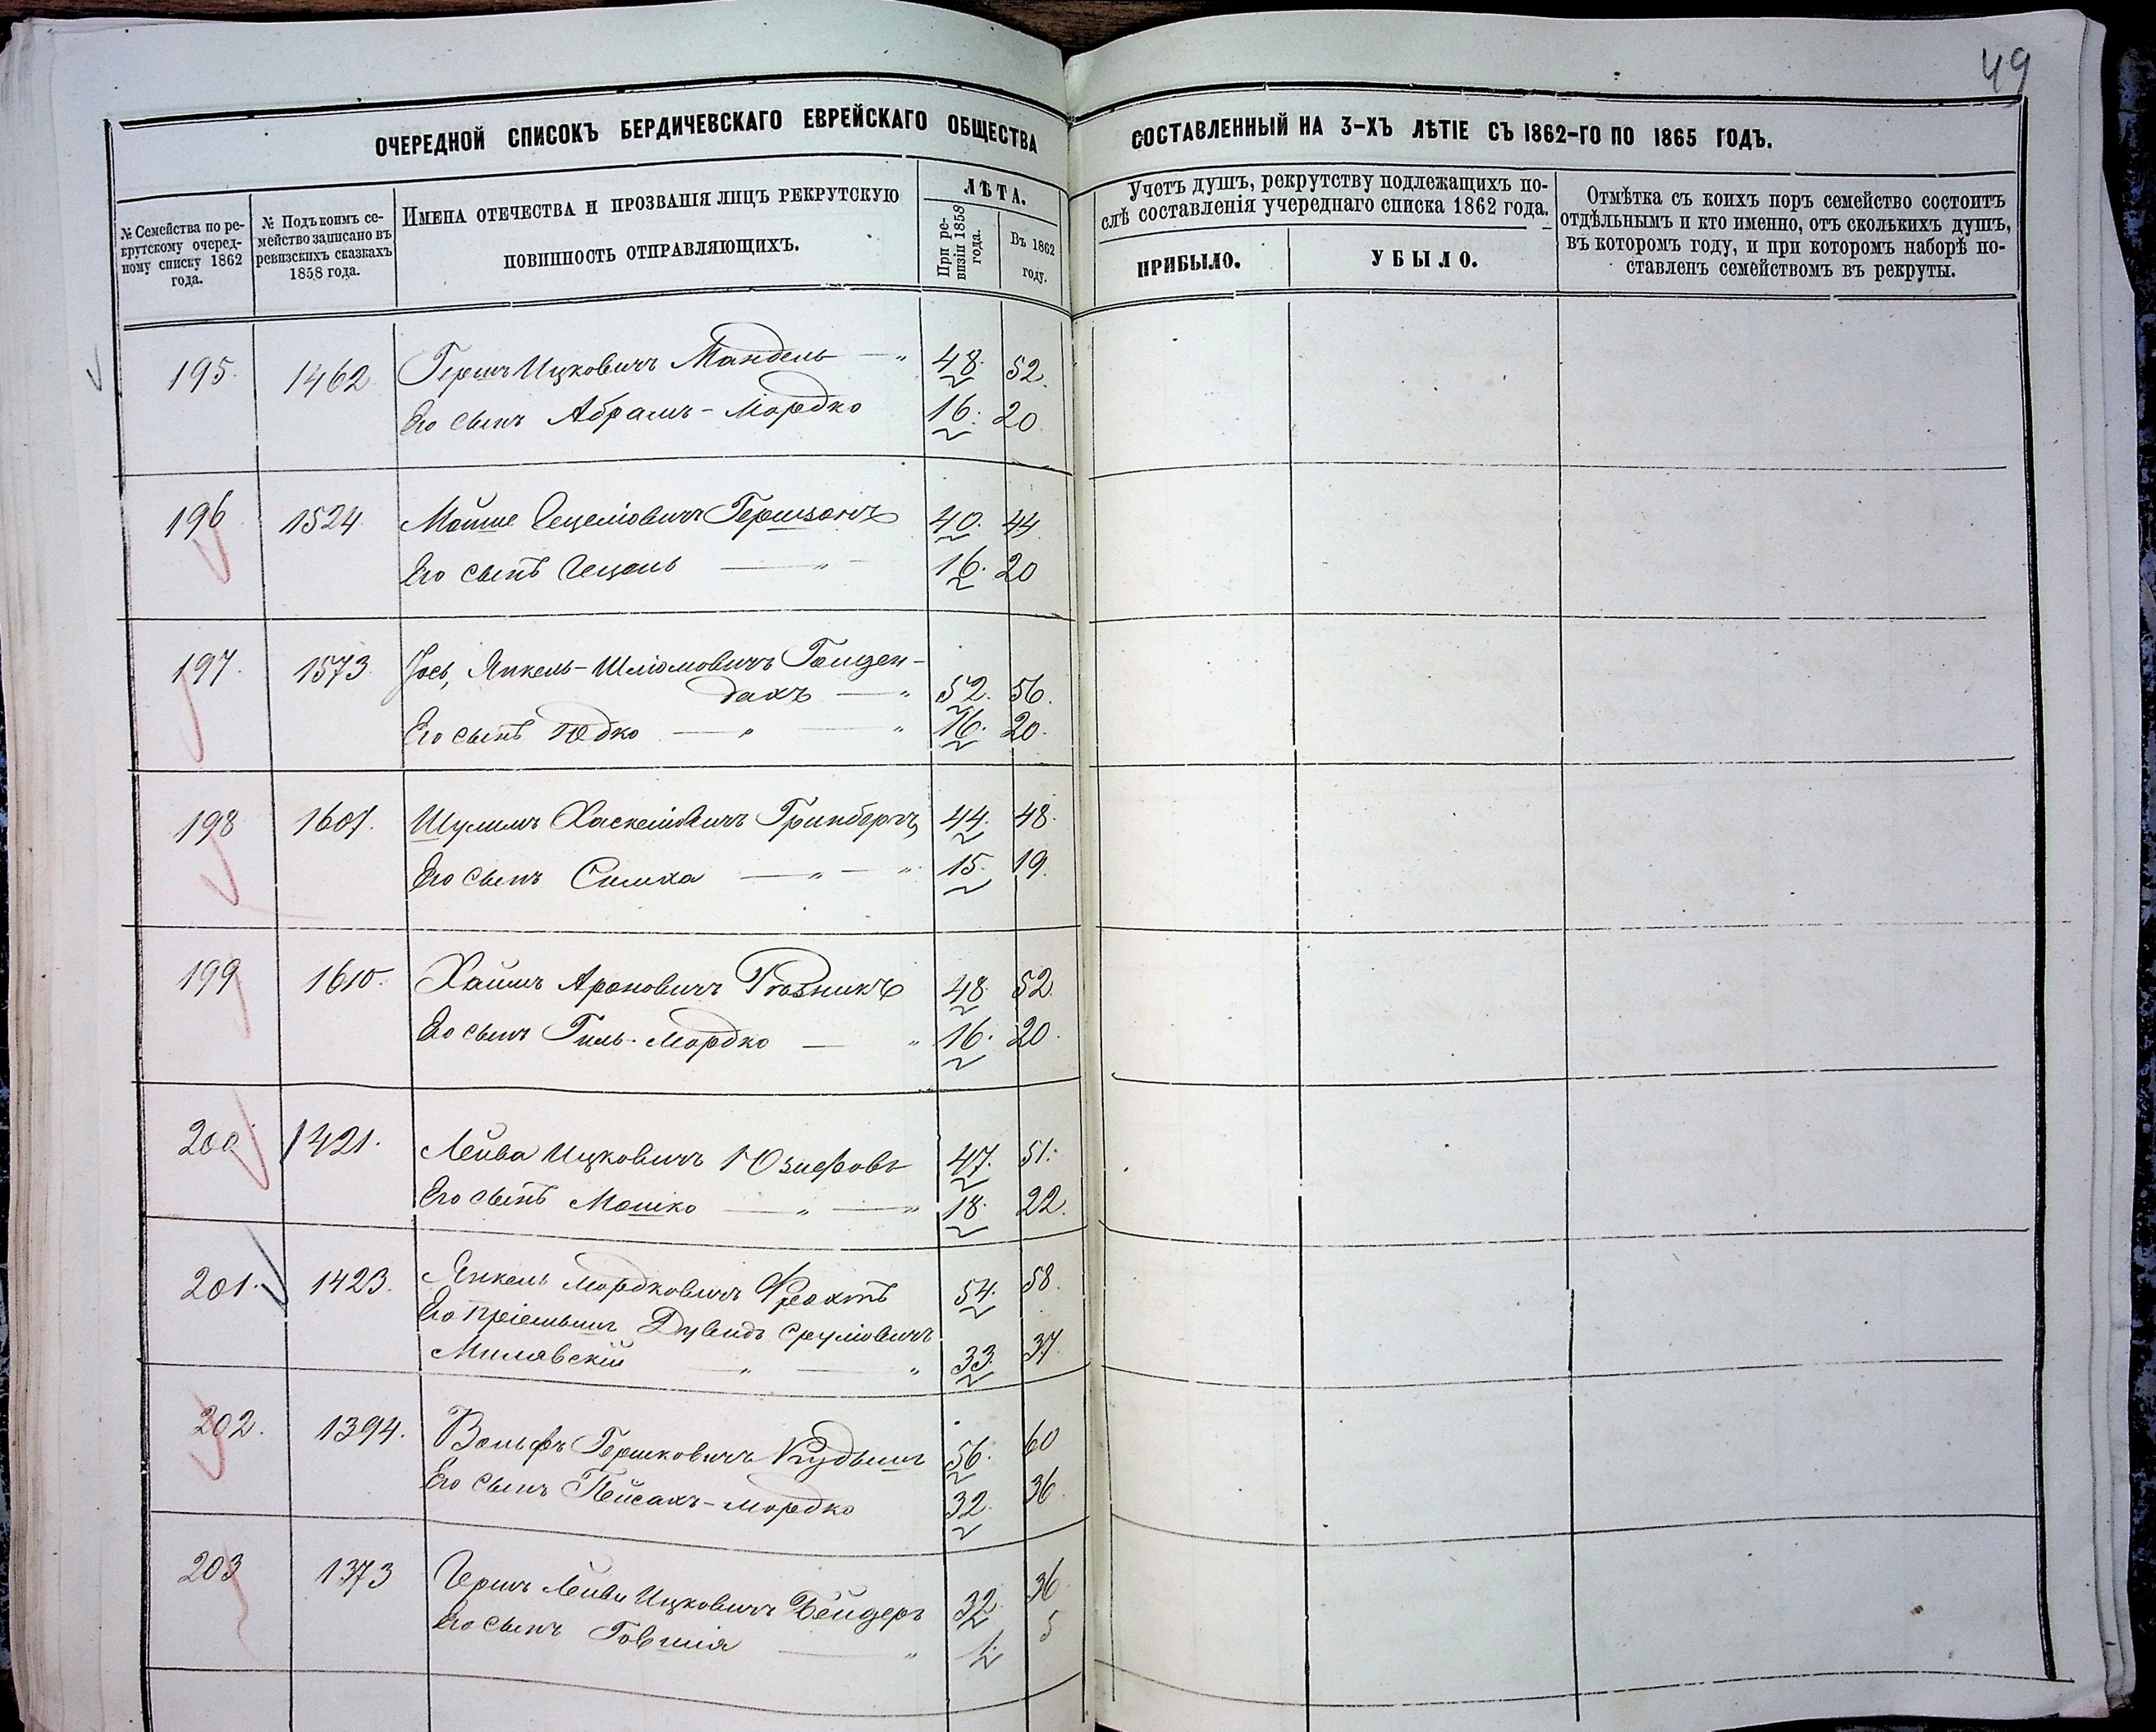 49
ОЧЕРЕДНОЙ СПИСОКЪ БЕРДИЧЕВСКАГО ЕВРЕЙСКАГО ОБЩЕСТВА СОСТАВЛЕННЫЙ НА 3-ХЪ ЛѢТІЕ СЪ 1862-ГО ПО 1865 ГОДЪ.
№ Семейства по ре-
крутскому очеред-
ному списку 1862
года.
№ Подъ коимъ се-
мейство записано въ
ревизскихъ сказкахъ
1858 года.
ИМЕНА ОТЕЧЕСТВА И ПРОЗВАНІЯ ЛИЦЪ РЕКРУТСКУЮ
ПОВИННОСТЬ ОТПРАВЛЯЮЩИХЪ.
ЛѢТА.
При ре-
визіи 1858
года.
Въ 1862
году.
Учетъ душъ, рекрутству подлежащихъ по-
слѣ составленія учереднаго списка 1862 года.
ПРИБЫЛО.
УБЫЛО.
Отмѣтка съ коихъ поръ семейство состоитъ
отдѣльнымъ и кто именно, отъ сколькихъ душъ,
въ которомъ году, и при которомъ наборѣ по-
ставленъ семействомъ въ рекруты.
195. 1462 Гершъ Ицковичъ Мандель 48. 52.
Его сынъ Абрамъ-Мордко 16. 20
196 1524 Мошше Гецелiовичъ Гершзонъ 40. 44
Его сынъ Гецель 16. 20
197. 1573 Іось, Янкель-Шліомовичъ
52. 56.
Его сынъ Юдко 16. 20.
198 1607. Шулимъ Хаскеліовичъ Гринбергъ 44. 48.
Его сынъ Симха 15. 19.
199 1610. Хаимъ Ароновичъ 48. 52.
Его сынъ Гиль-Мордко 16. 20.
200 1421. Лейба Ицковичъ Юзиефовъ 47. 51.
Его сынъ Мошко 18. 22.
201. 1423. Янкель Мордковичъ 54. 58.
Его пріемышъ Дувидъ Сруліовичъ
Милявскій 33. 37.
202. 1394. Вольфъ Гершковичъ 56. 60
Его сынъ Пейсахъ-Мордко 32. 36.
203 1373 Гершъ Лейба Ицковичъ 32. 36.
Его сынъ Говшія 1. 5